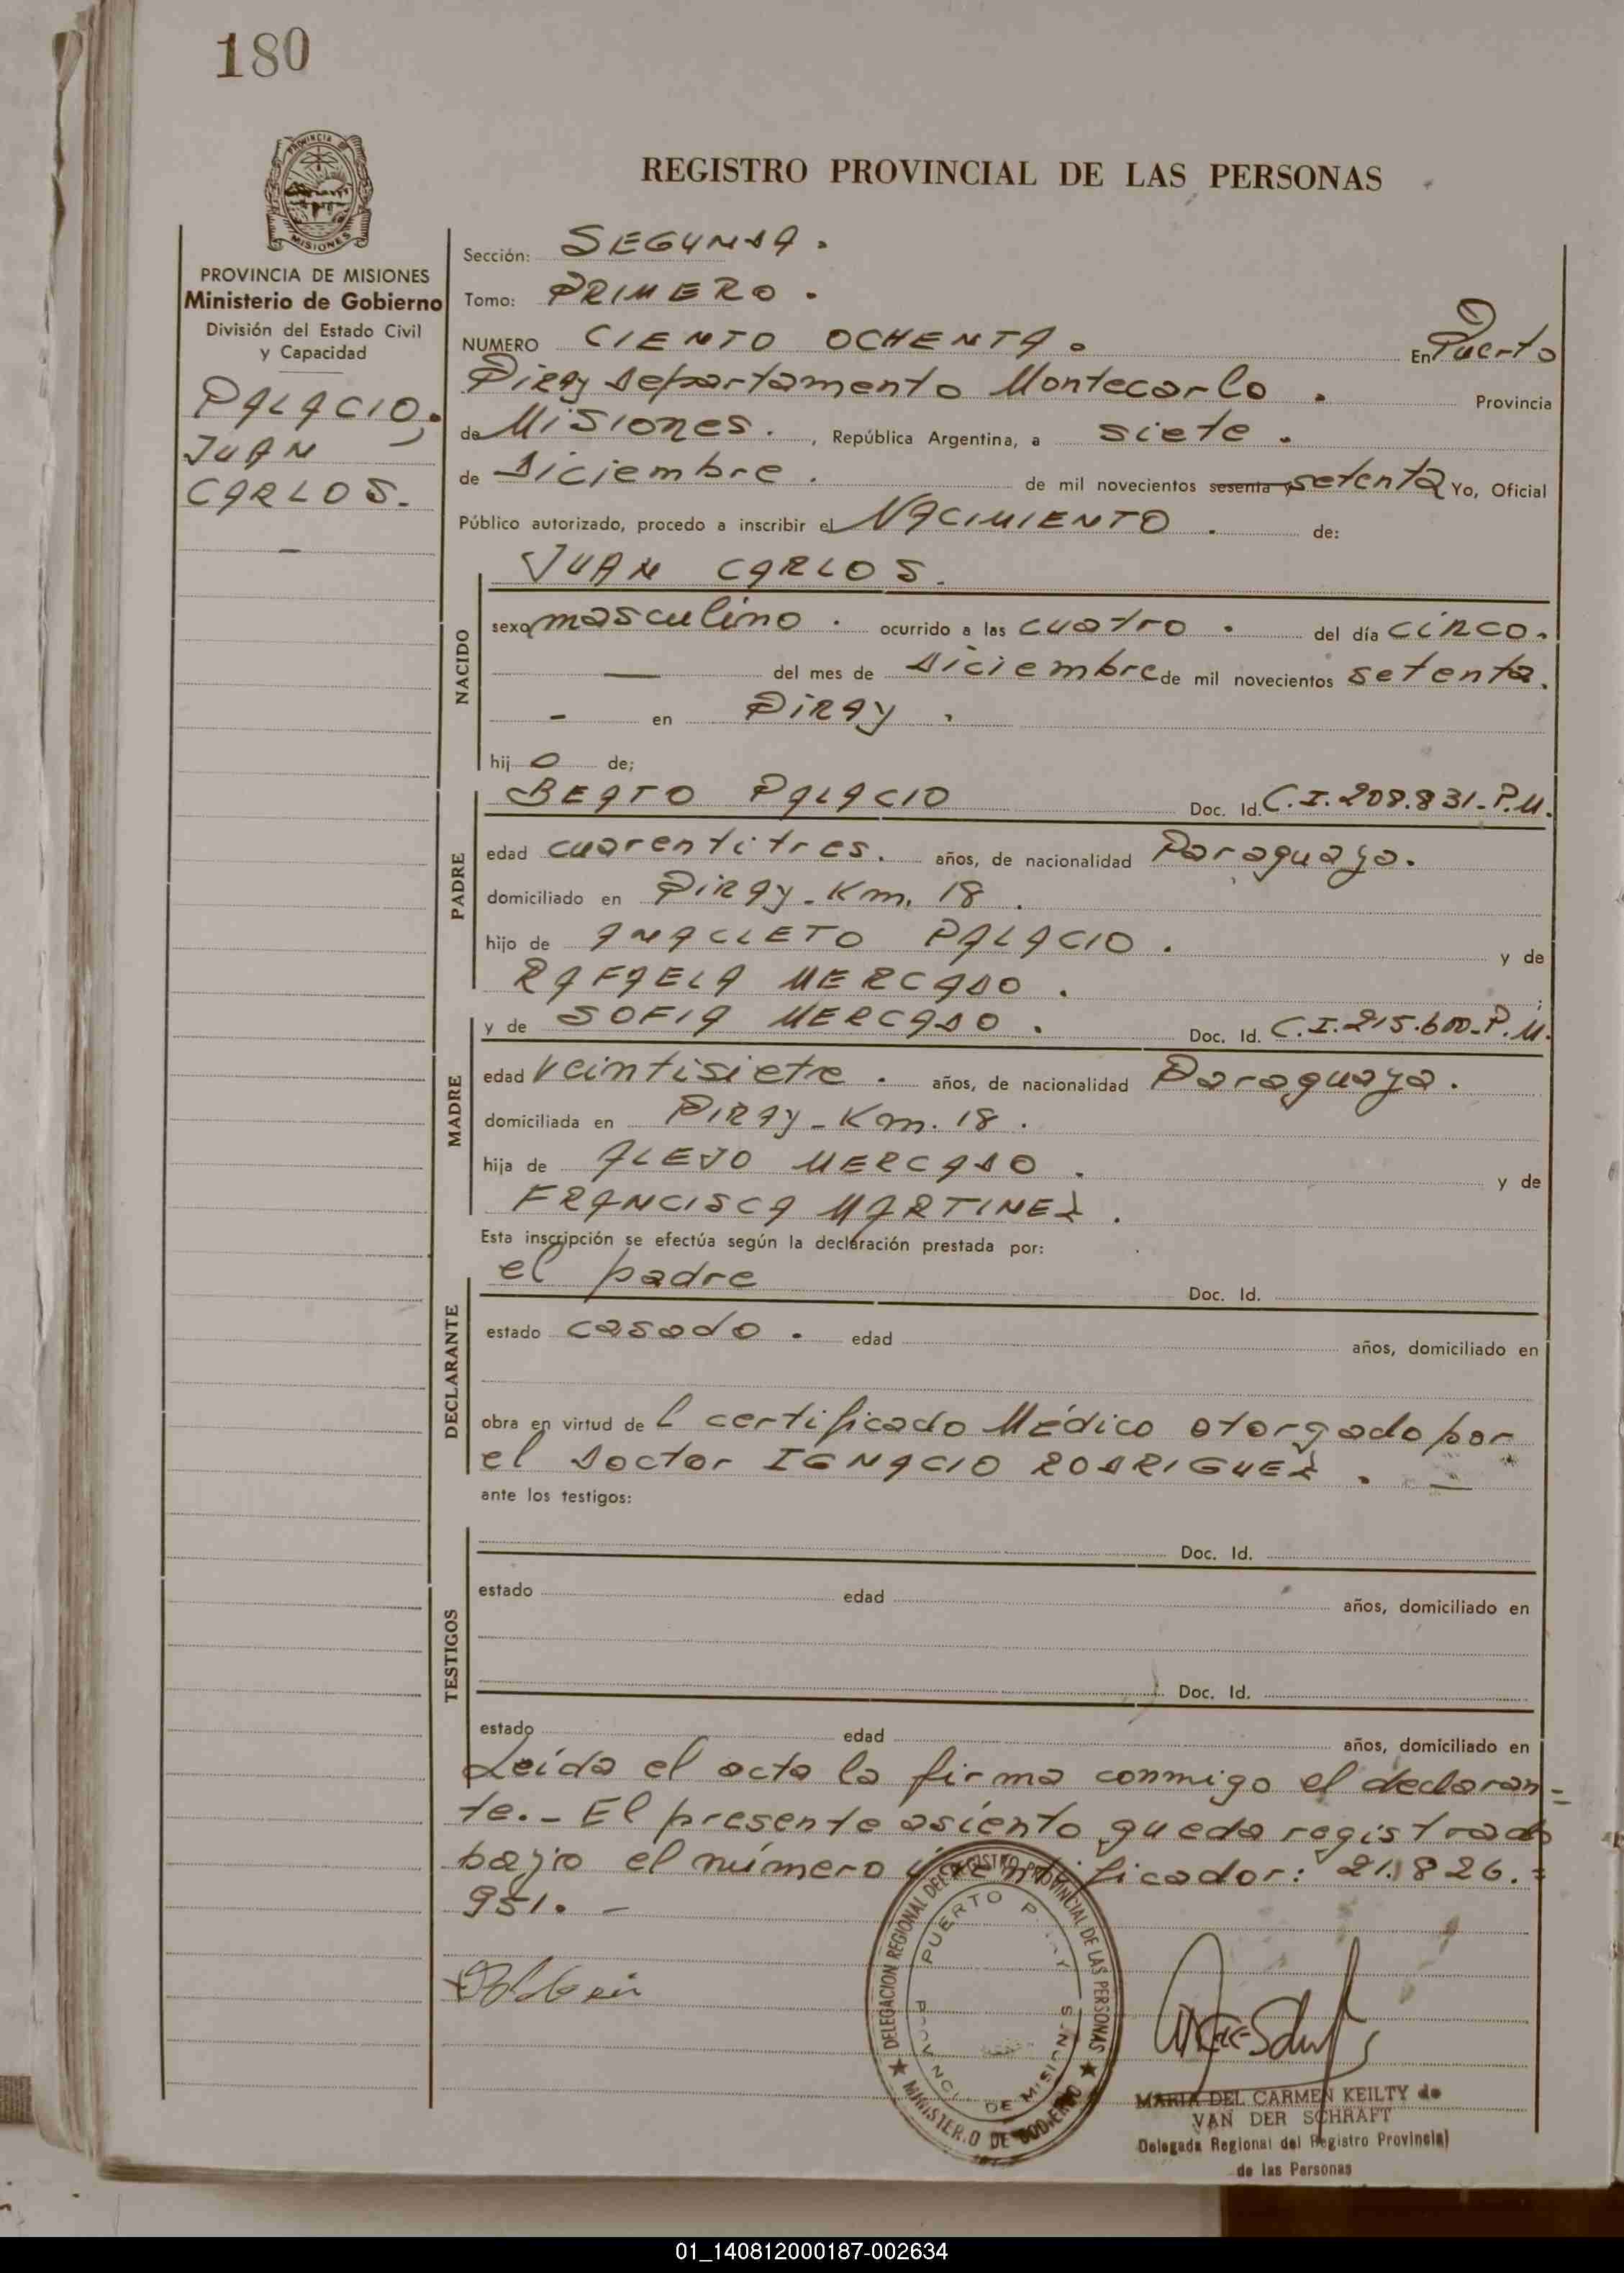 180
REGISTRO PROVINCIAL DE LAS PERSONAS
PROVINCIA DE MISIONES
Ministerio de Gobierno
División del Estado Civil
y Capacidad
PALACIO,
JUAN
CARLOS.
Sección: SEGUNDA.
Tomo: PRIMERO.
NUMERO CIENTO OCHENTA. En Puerto
Piray departamento Montecarlo. Provincia
de Misiones. , República Argentina, a siete.
de diciembre. de mil novecientos sesenta y setenta Yo, Oficial
Público autorizado, procedo a inscribir el NACIMIENTO. de:
JUAN CARLOS.
NACIDO
sexo masculino. ocurrido a las cuatro. del día cinco.
— del mes de diciembre de mil novecientos setenta.
- en Piray.
hij o de;
PADRE
BEATO PALACIO Doc. Id. C.I.208.831-P.M.
edad cuarentitres. años, de nacionalidad Paraguaya.
domiciliado en Piray-Km. 18.
hijo de ANACLETO PALACIO. y de
RAFAELA MERCADO. ;
MADRE
y de SOFIA MERCADO. Doc. Id. C.I.215.600-P.M.
edad veintisiete. años, de nacionalidad Paraguaya.
domiciliada en Piray-Km. 18.
hija de ALEJO MERCADO. y de
FRANCISCA MARTINEZ.
Esta inscripción se efectúa según la declaración prestada por:
DECLARANTE
el padre Doc. Id.
estado casado. edad años, domiciliado en
obra en virtud de l certificado Médico otorgado por
el doctor IGNACIO RODRIGUEZ. —
ante los testigos:
TESTIGOS
Doc. Id.
estado edad años, domiciliado en
Doc. Id.
estado edad años, domiciliado en
Leída el acta la firma conmigo el declaran=
te.- El presente asiento queda registrado
bajo el número identificador: 21.826.=
951. -
DELEGACION REGIONAL DEL REGISTRO PROVINCIAL DE LAS PERSONAS
PUERTO PIRAY
PROVINCIA DE MISIONES
MINISTERIO DE GOBIERNO
MARIA DEL CARMEN KEILTY de
VAN DER SCHRAFT
Delegada Regional del Registro Provincial
de las Personas
01_140812000187-002634